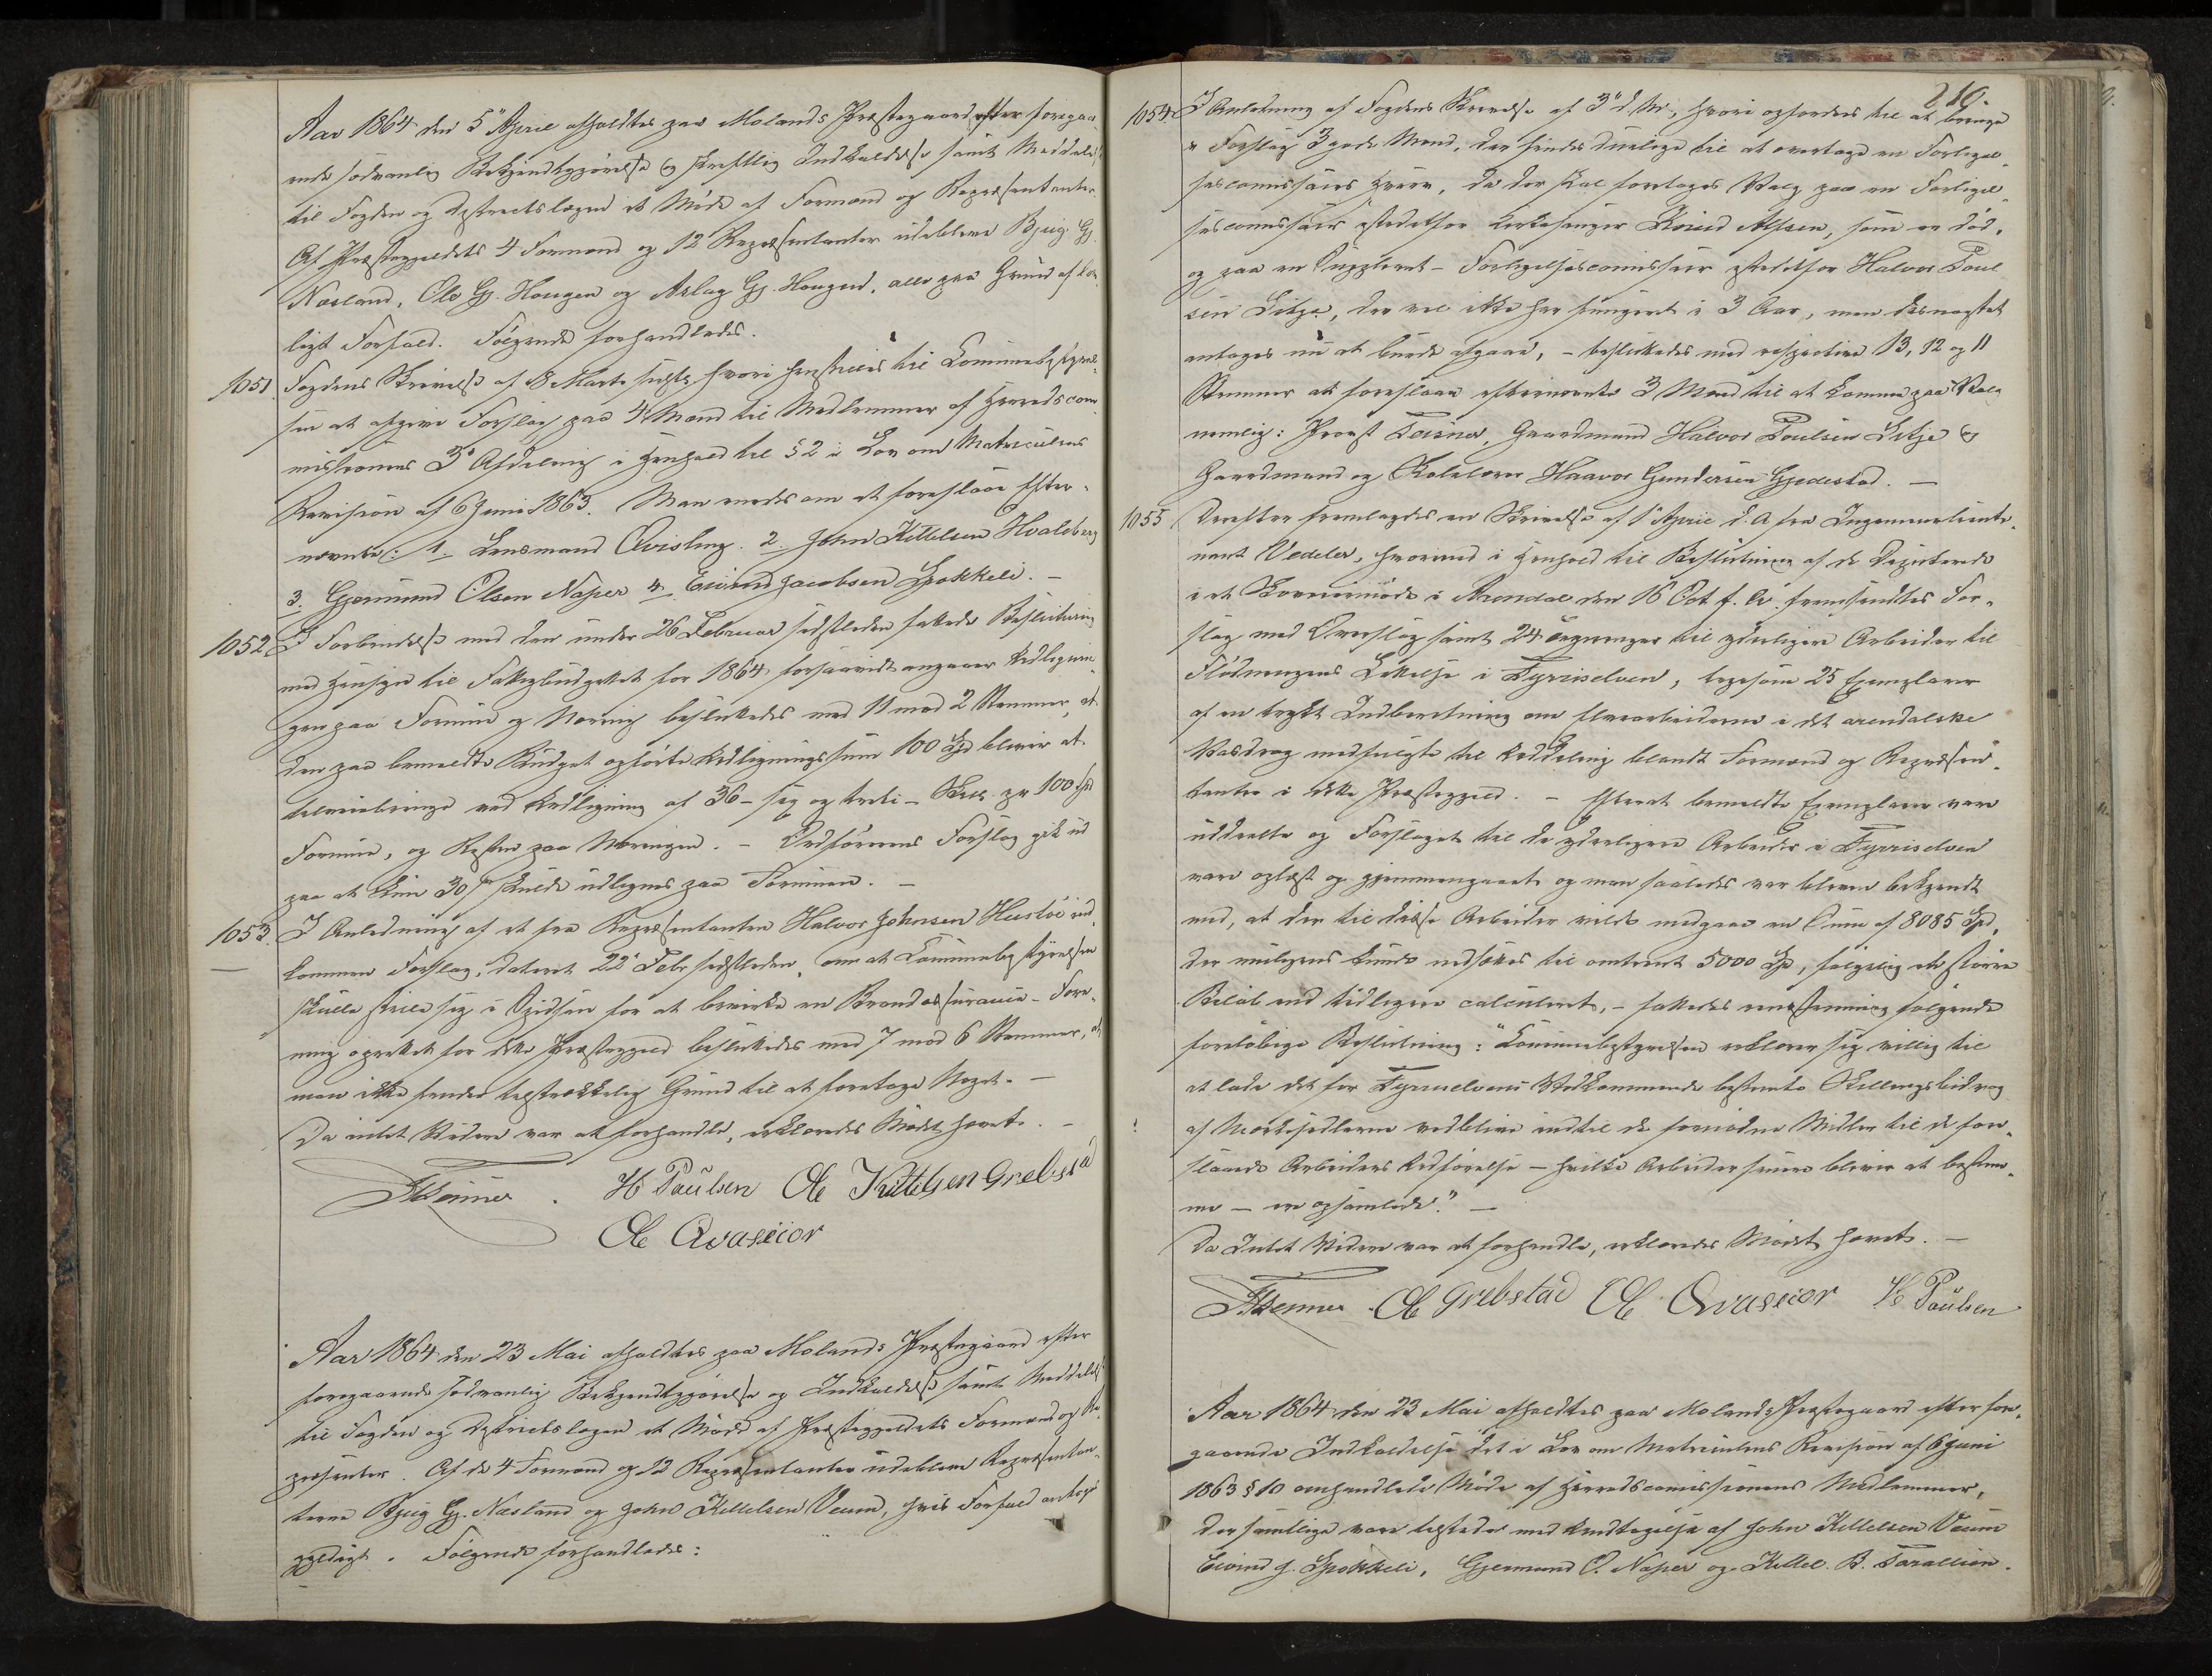 Aar 1864 den 5te April afholdtes paa Molands Præstegaard efter foregaa-
ende sædvanlig Bekjendtgjørelse og skriftlig Indkaldelse samt Meddelelse
til Fogden og Distrectslægen et Møde af Formænd og Repræsentanter
Af Præstegjeldets 4 Formænd og 12 Repræsentanter udebleve Bjug Gj.
Næsland, Ole Gj. Haugen og Aslag Gj. Haugen, alle paa Grund af lov-
ligt Forfald. Følgende forhandledes.
1051. Fogdens Skrivelse af 8 Marts sidstl., hvori henstilles til Communebestyrel-
sen at afgive Forslag paa 4 Mænd til Medlemmer af Herredscom-
missionens 3die Afdeling i Henhold til § 2 i Lov om Matriculens
Revision af 6 Juni 1863. Man enedes om at foreslaae Efter-
nævnte: 1. Lensmand Qvisling. 2. John Kittelsen Hvalsberg
3. Gjermund Olsen Naper 4. Eivind Jacobsen Spokkeli. —
1052 I Forbindelse med den under 26 Februar sidstleden fattede Beslutning
med Hensyn til Fattigbudgettet for 1864 forsaavidt angaaer Udlignin-
gen paa Formue og Næring besluttedes med 11 mod 2 Stemmer, at
den paa bemeldte Budget opførte Udligningssum 100 Spd bliver at
tilveiebringe ved Udligning af 36 - sex og treti - Skill. pr 100 Spd
Formue, og Resten paa Næringen. — Ordførerens Forslag gik ud
paa at kun 30 ß skulde udlignes paa Formuen. —
1053. I Anledning af et fra Repræsentanten Halvor Johnsen Hustöl ind-
kommen Forslag, dateret 22de Febr. sidstleden, om at Communebestyrelsen
skulle stille sig i Spidsen for at bevirke en Brandassurance-Fore-
ning oprettet for dette Præstegjeld besluttedes med 7 mod 6 Stemmer, at
man ikke fandt tilstrækkelig Grund til at foretage Noget. —
Da intet Videre var at forhandle, erklæredes Mødet hævet. —
H Paulsen Ole Kittelsen Grebsta
Ole Qvaseior
Aar 1864 den 23 Mai afholdtes paa Molands Præstegaard efter
foregaaende sædvanlig Bekjendtgjørelse og Indkaldelse samt Meddelelse
til Fogden og Districtslægen et Møde af Præstegjeldets Formænd og Re-
præsenter. Af de 4 Formænd og 12 Repræsentanter udebleve Repræsentan-
terne Bjug Gj. Næsland og John Kittelsen Veum, hvis Forfald ansaaes
gyldigt. Følgende forhandledes:
210.
1054. I Anledning af Fogdens Skrivelse af 3die d. M., hvori opfordres til at bringe
i Forslag 3 gode Mænd, der findes duelige til at overtage en Forligel-
sescommissairs Hverv, da der skal foretages Valg paa en Forligel-
sescommissair istedetfor Kirkesanger Alfsen, som er død,
og paa en Suppleant-Forligelsescommissair istedetfor Halvor Poul-
sen Sitje, der vel ikke har fungeret i 3 Aar, men desuagtet
antages nu at burde afgaae, — besluttedes med respective 13, 12 og 11
Stemmer at foreslaae efternævnte 3 Mænd til at komme paa Valg
nemlig: Provst Teisner, Gaardmand Halvor Poulsen Sitje og
Gaardmand og Skolelærer Haavor Gundersen Gjedestad. —
1055 Derefter fremlagdes en Skrivelse af 1ste April d. A fra Ingenieurlieute-
nant Vedeler, hvorved i Henhold til Beslutning af de Deputerede
i et Skovmøde i Arendal den 16 Oct. f. A. fremsendtes For-
slag med Overslag samt 24 Tegninger til yderligere Arbeider til
Flødningens Lettelse i Fyriselven, ligesom 25 Exemplarer
af en trykt Indberetning om Elvearbeiderne i det arendalske
Vasdrag medfulgte til Uddeling blandt Formænd og Repræsen-
tanter i dette Præstegjeld. — Efterat bemeldte Exemplarer vare
uddeelte og Forslaget til de yderligere Arbeider i Fyriselven
vare oplæst og gjennemgaaet og man saaledes var bleven bekjendt
med, at der til disse Arbeider vilde medgaae en Sum af 8085 Spd,
der muligens kunde nedsættes til omtrent 5000 Spd, følgelig et større
Beløb end tidligere calculeret, — fattedes eenstemmig følgende
foreløbige Beslutning: "Communebestyrelsen erklærer sig villig til
at lade det for Fyriselvens Vedkommende bestemte Skillingsbidrag
af Mærkesedlerne vedblive indtil de fornødne Midler til de fore-
slaaede Arbeiders Udførelse — hvilke Arbeider senere bliver at bestem-
me — ere opsamlede." —
Da Intet Videre var at forhandle, erklæredes Mødet hævet. —
Ole Grebstad Ole Qvaseior H Paulsen
Aar 1864 den 23 Mai afholdtes paa Molands Præstegaard efter fore-
gaaende Indkaldelse det i Lov om Matriculens Revision af 6 Juni
1863 § 10 omhandlede Møde af Herredscommissionens Medlemmer,
der samtlige vare tilstede med Undtagelse af John Kittelsen Veum
Eivind J. Spokkeli, Gjermund O. Naper og Kittel B. Taraldlien.